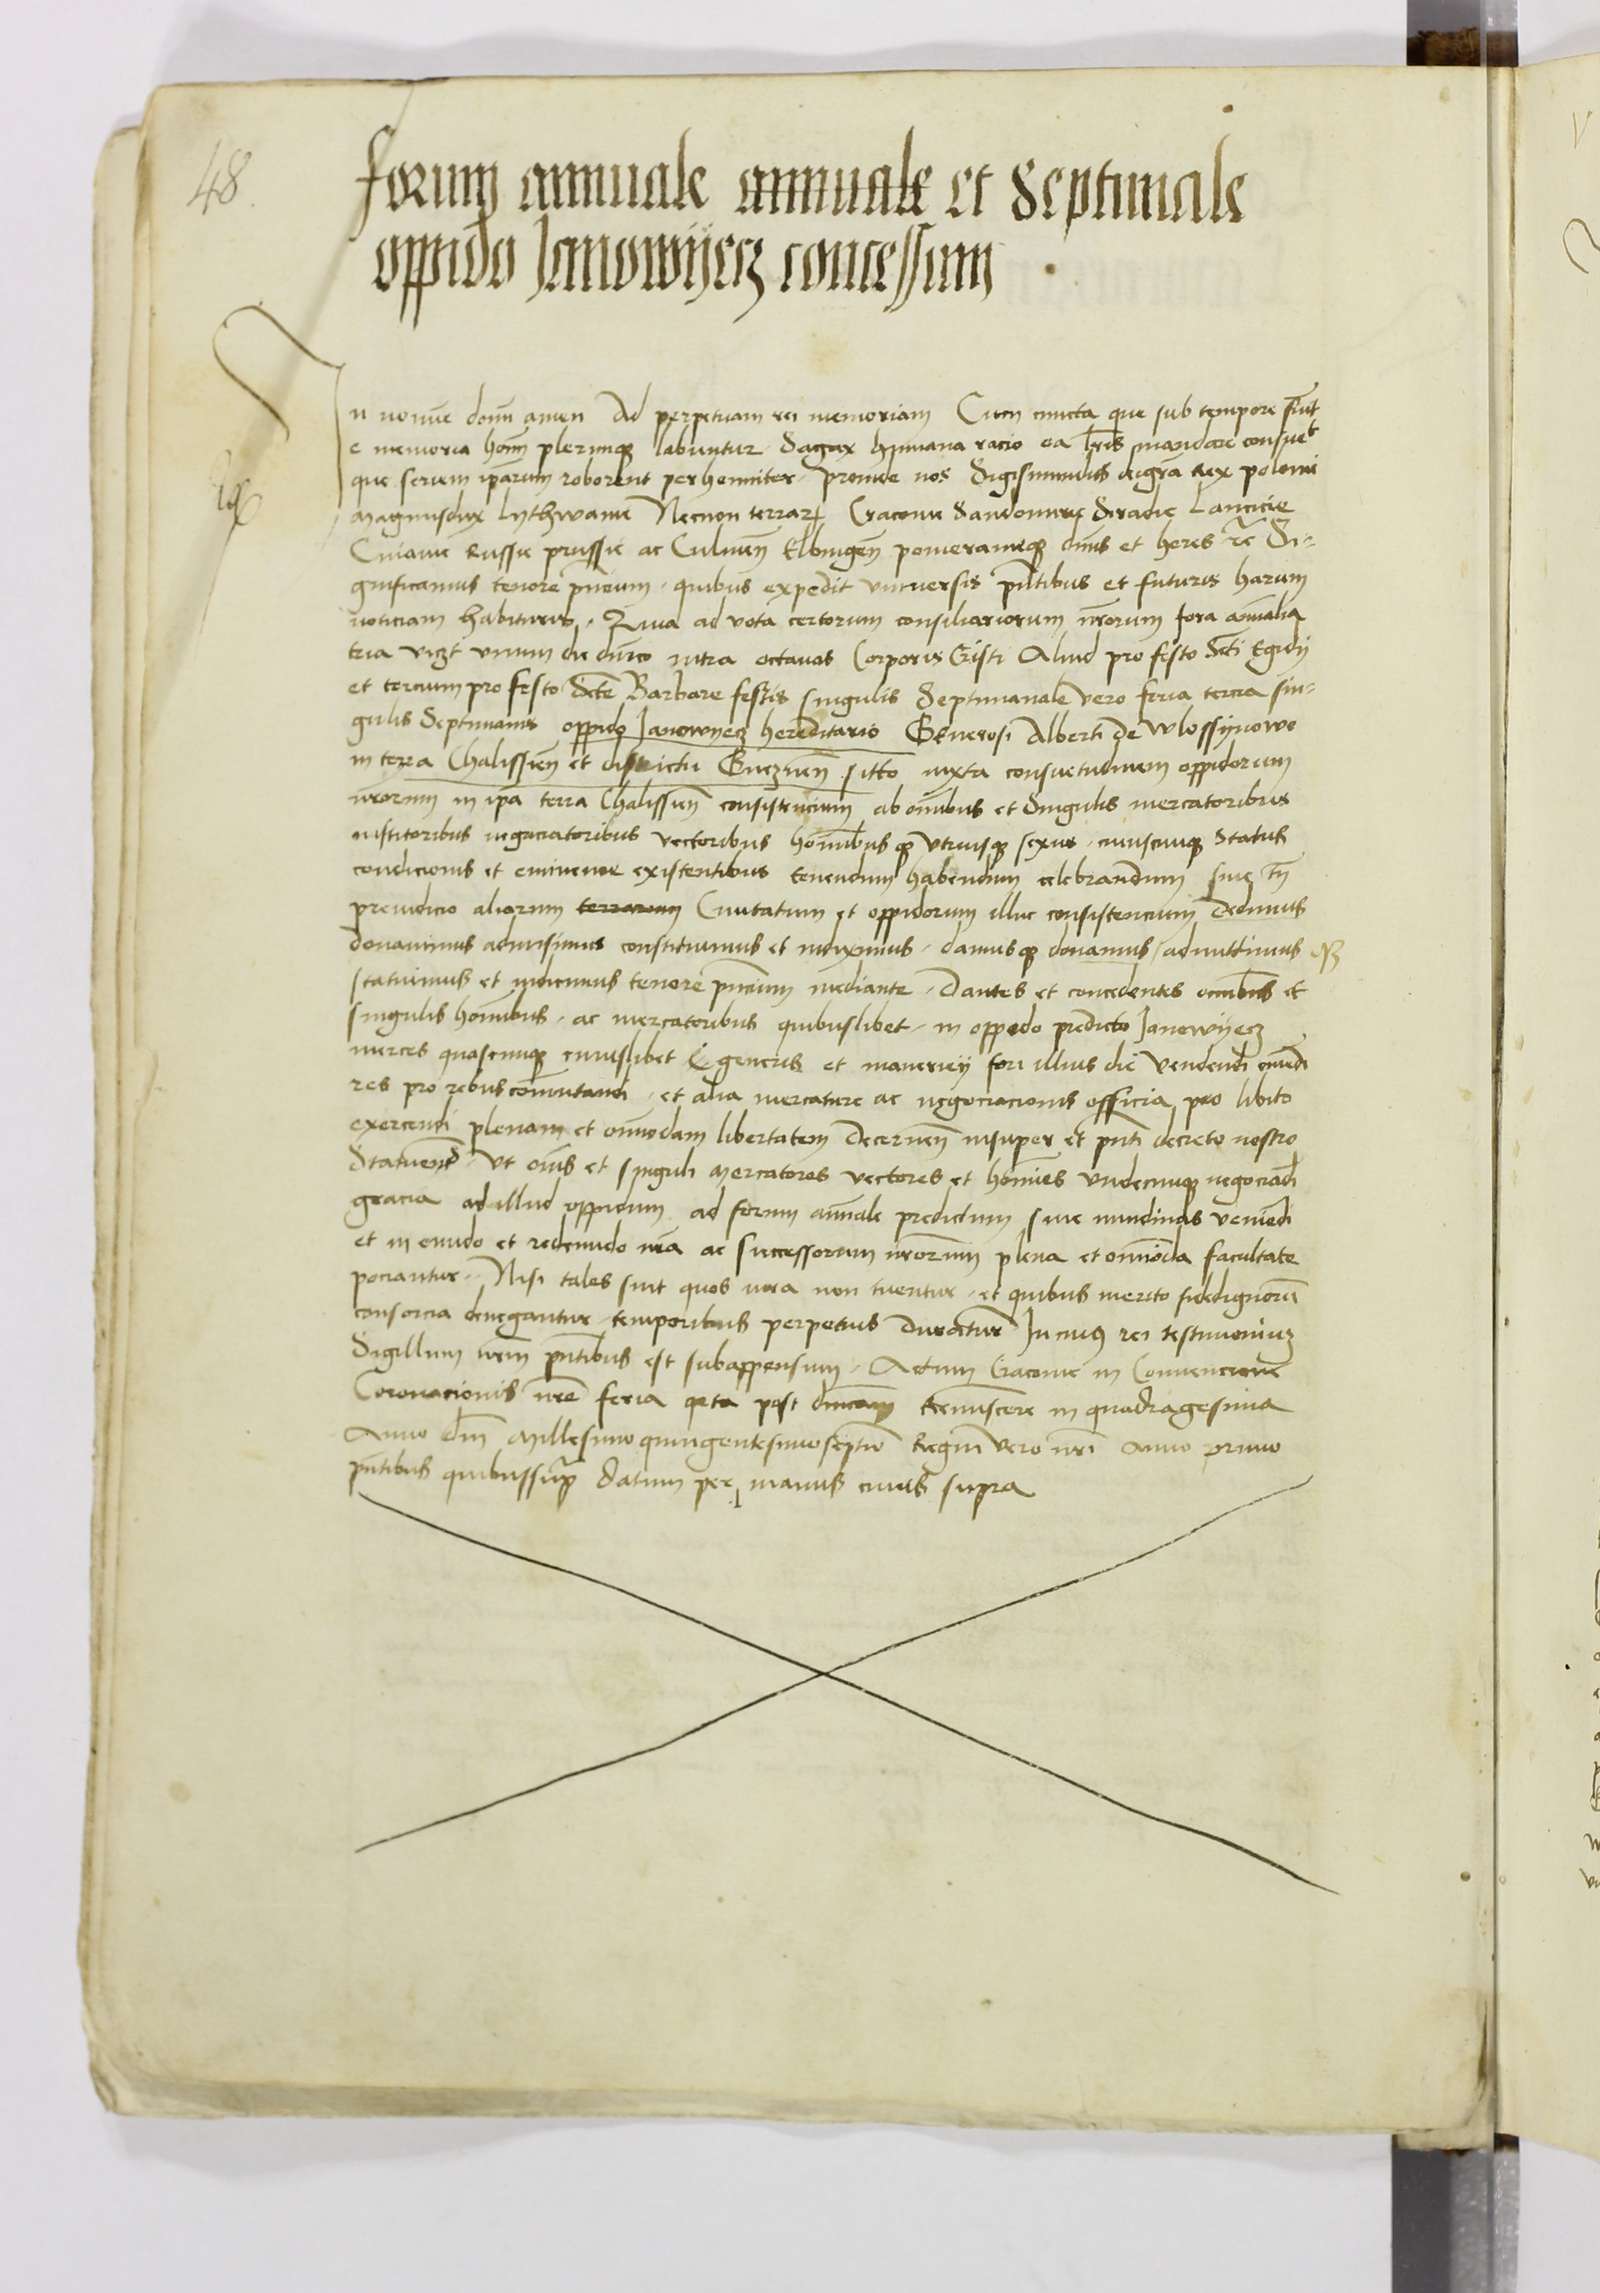 48.
Forum annuale annuale et Septimale
oppido Janowyecz concessum
In noi͞e domi͞ amen Ad perpetuam rei memoriam Cum cuncta que sub tempore fiu͞t
e memoria hom͞ plerumq labuntur Sagax humana racio ea l͞ris mandare consuet
que seriem ipsarum roborent perhenniter Proinde nos Sigismundus dei gr͞a Rex polonie
Magnusdux Lythwanie Necnon terrar Cracovie Sandomirie Siradie Lancicie
Cuiavie Russie prussie ac Culmen͞ Elbingen͞ pomeranieq d͞ns et heres r͞c Si-
gnificamus tenore p͞ncium quibus expedit universis p͞ntibus et futuris harum
noticiam habituris Quia ad vota certorum consiliariorum n͞rorum fora annalia
tria vicz͞t unum die d͞nico intra octavas Corporis C͞risti Aliud pro festo S͞cti Egidij
et tercium pro festo S͞cte Barbare festis singulis Septimanale vero feria tercia sin-
gulis Septimanis oppido Janowyecz hereditario Generosi Alberti de Wlossynowo
in terra Chalissien͞ et districtu Gneznen͞ sitto iuxta consuetudinem oppidorum
n͞rorum in ip͞a terra Chalissien͞ consistencium ab om͞ibus et Singulis mercatoribus
institoribus negociatoribus vectoribus homi͞bus q utriusq sexus cuiuscunq Status
condicionis et eminencie existentibus tenendum habendum celebrandum sine t͞n
preiudicio aliorum terrarum Civitatum et oppidorum illic consistencium dedimus
donavimus admisimus constituimus et indiximus damusq donamus admittimus
statuimus et indicimus tenore p͞ncium mediante Dantes et concedentes omi͞bus et
singulis homi͞bus ac mercatoribus quibuslibet in oppido predicto Janowyecz
merces quascunq cuiuslibet generis et maneriey fori illius die vendendi emendi
res pro rebus com͞utandi et alia mercature ac negociacionis officia pro libito
exercendi plenam et omi͞modam libertatem Decernen͞ insuper et p͞nti decreto nostro
Statuen͞ Ut om͞es et singuli mercatores vectores et homi͞es undecunq negociandi
gracia ad illud oppidum ad forum annale predictum sive nundinas veniendi
et in eundo et redeundo n͞ra ac successorum n͞rorum plena et om͞imoda facultate
pociantur Nisi tales sint quos iura non tuentur et quibus merito fidedignorum
consorcia denegantur temporibus perpetuis duratur͞ In cuius rei testimonium
Sigillum n͞rum p͞ntibus est subappensum Actum Cracovie in Convencione
Coronacionis n͞re feria q͞rta post d͞nicam Reminiscere in quadragesima
Anno d͞ni Millesimo quingentesimoseptimo Regni vero n͞ri anno primo
p͞ntibus quibussup͞ra datum per manus cuius supra